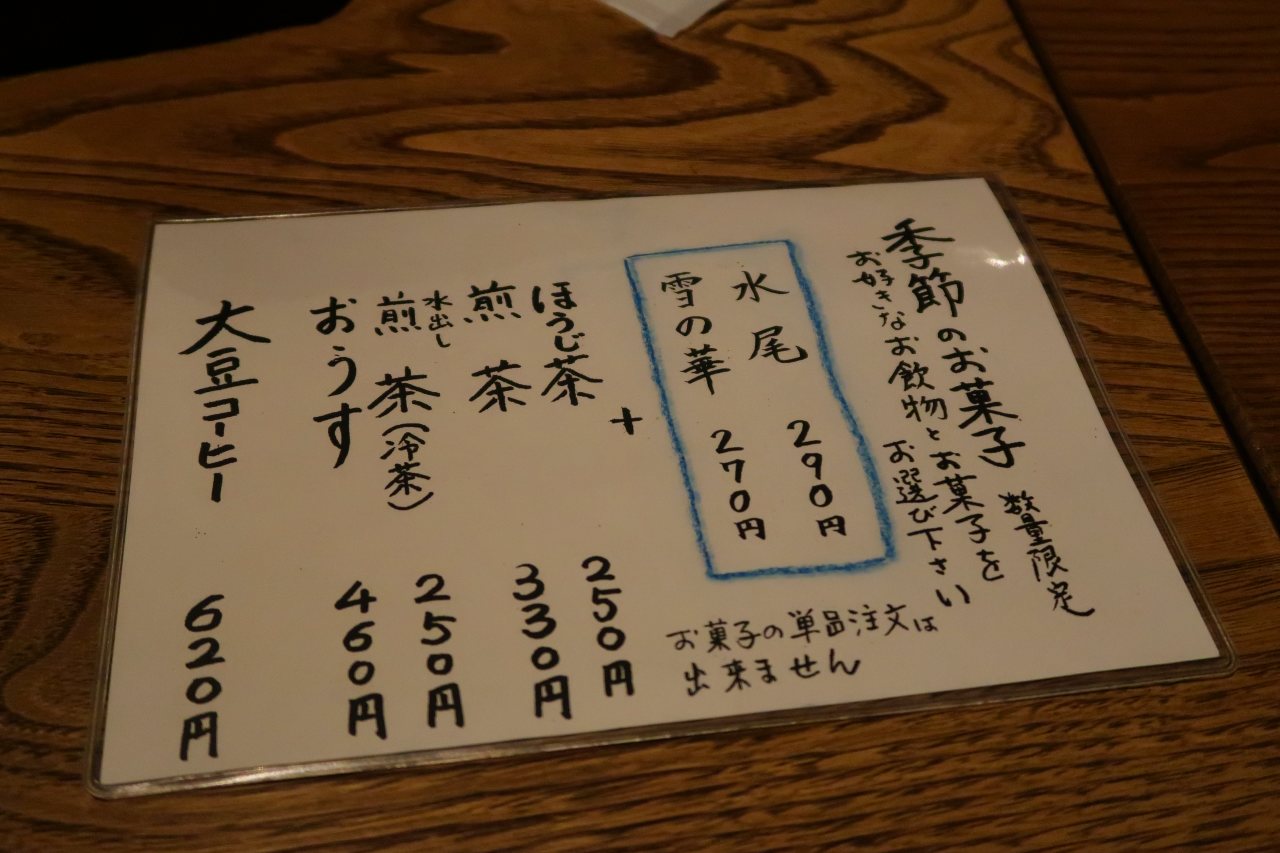 季節のお菓子 数量限定
お好きなお飲物とお菓子を
お選び下さい
水尾 290円
雪の華 270円
お菓子の単品注文は
出来ません
+
ほうじ茶 250円
煎茶 330円
水出し
煎茶(冷茶) 250円
おうす 460円
大豆コーヒー 620円